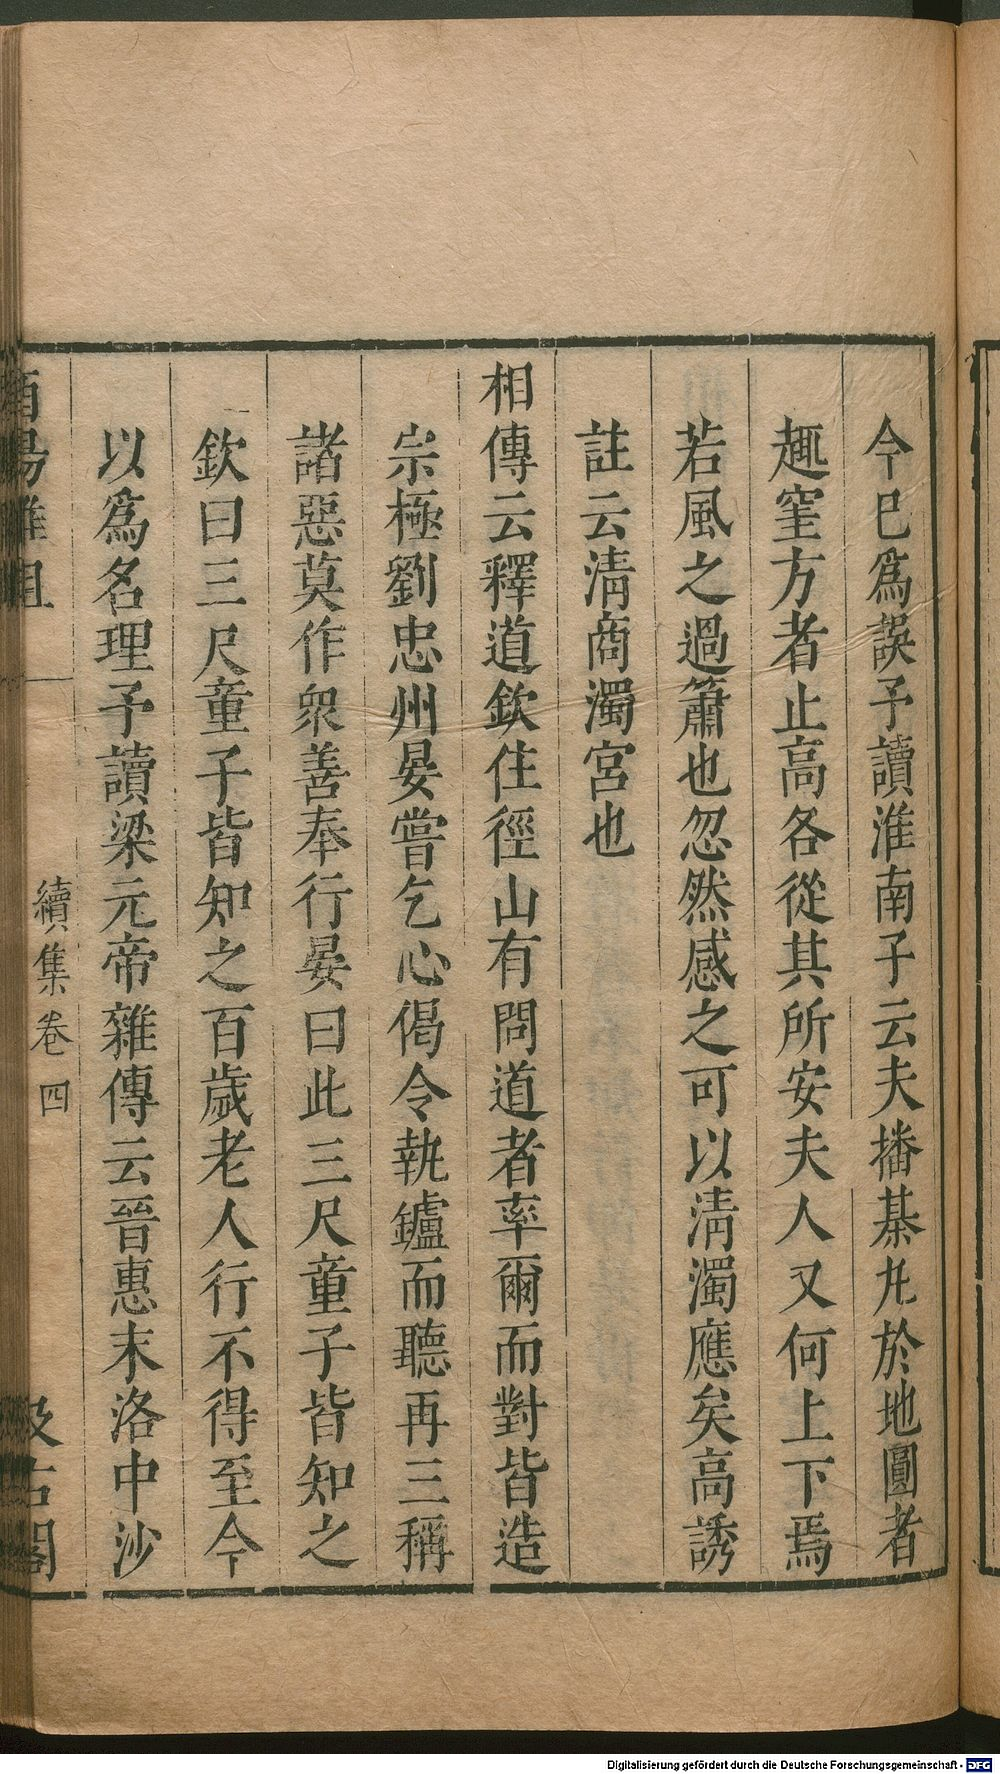 今巳爲誤予讀淮南子云夫播棊丸於地圓者
趣窐方者止高各從其所安夫人又何上下焉
若風之過簫也忽然感之可以淸濁應矣高誘
註云淸商濁宮也
相傳云釋道欽住徑山有問道者率爾而對皆造
宗極劉忠州晏嘗乞心偈令執鑪而聽再三稱
諸惡莫作衆善奉行晏曰此三尺童子皆知之
欽曰三尺童子皆知之百歲老人行不得至今
以爲名理予讀梁元帝雜傳云晉惠末洛中沙
酉陽雜俎
續集卷四
汲古閣
Digitalisierung gefördert durch die Deutsche Forschungsgemeinschaft - DFG